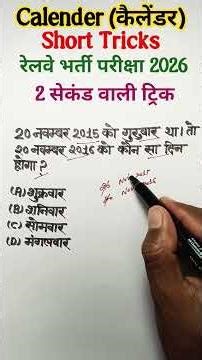 Calender (कैलेंडर)
Short Tricks
रेलवे भर्ती परीक्षा 2026
2 सेकंड वाली ट्रिक
20 नवम्बर 2015 को गुरुवार था। तो
20 नवम्बर 2016 को कौन सा दिन
होगा ?
(A) शुक्रवार
(B) शनिवार
(C) सोमवार
(D) मंगलवार